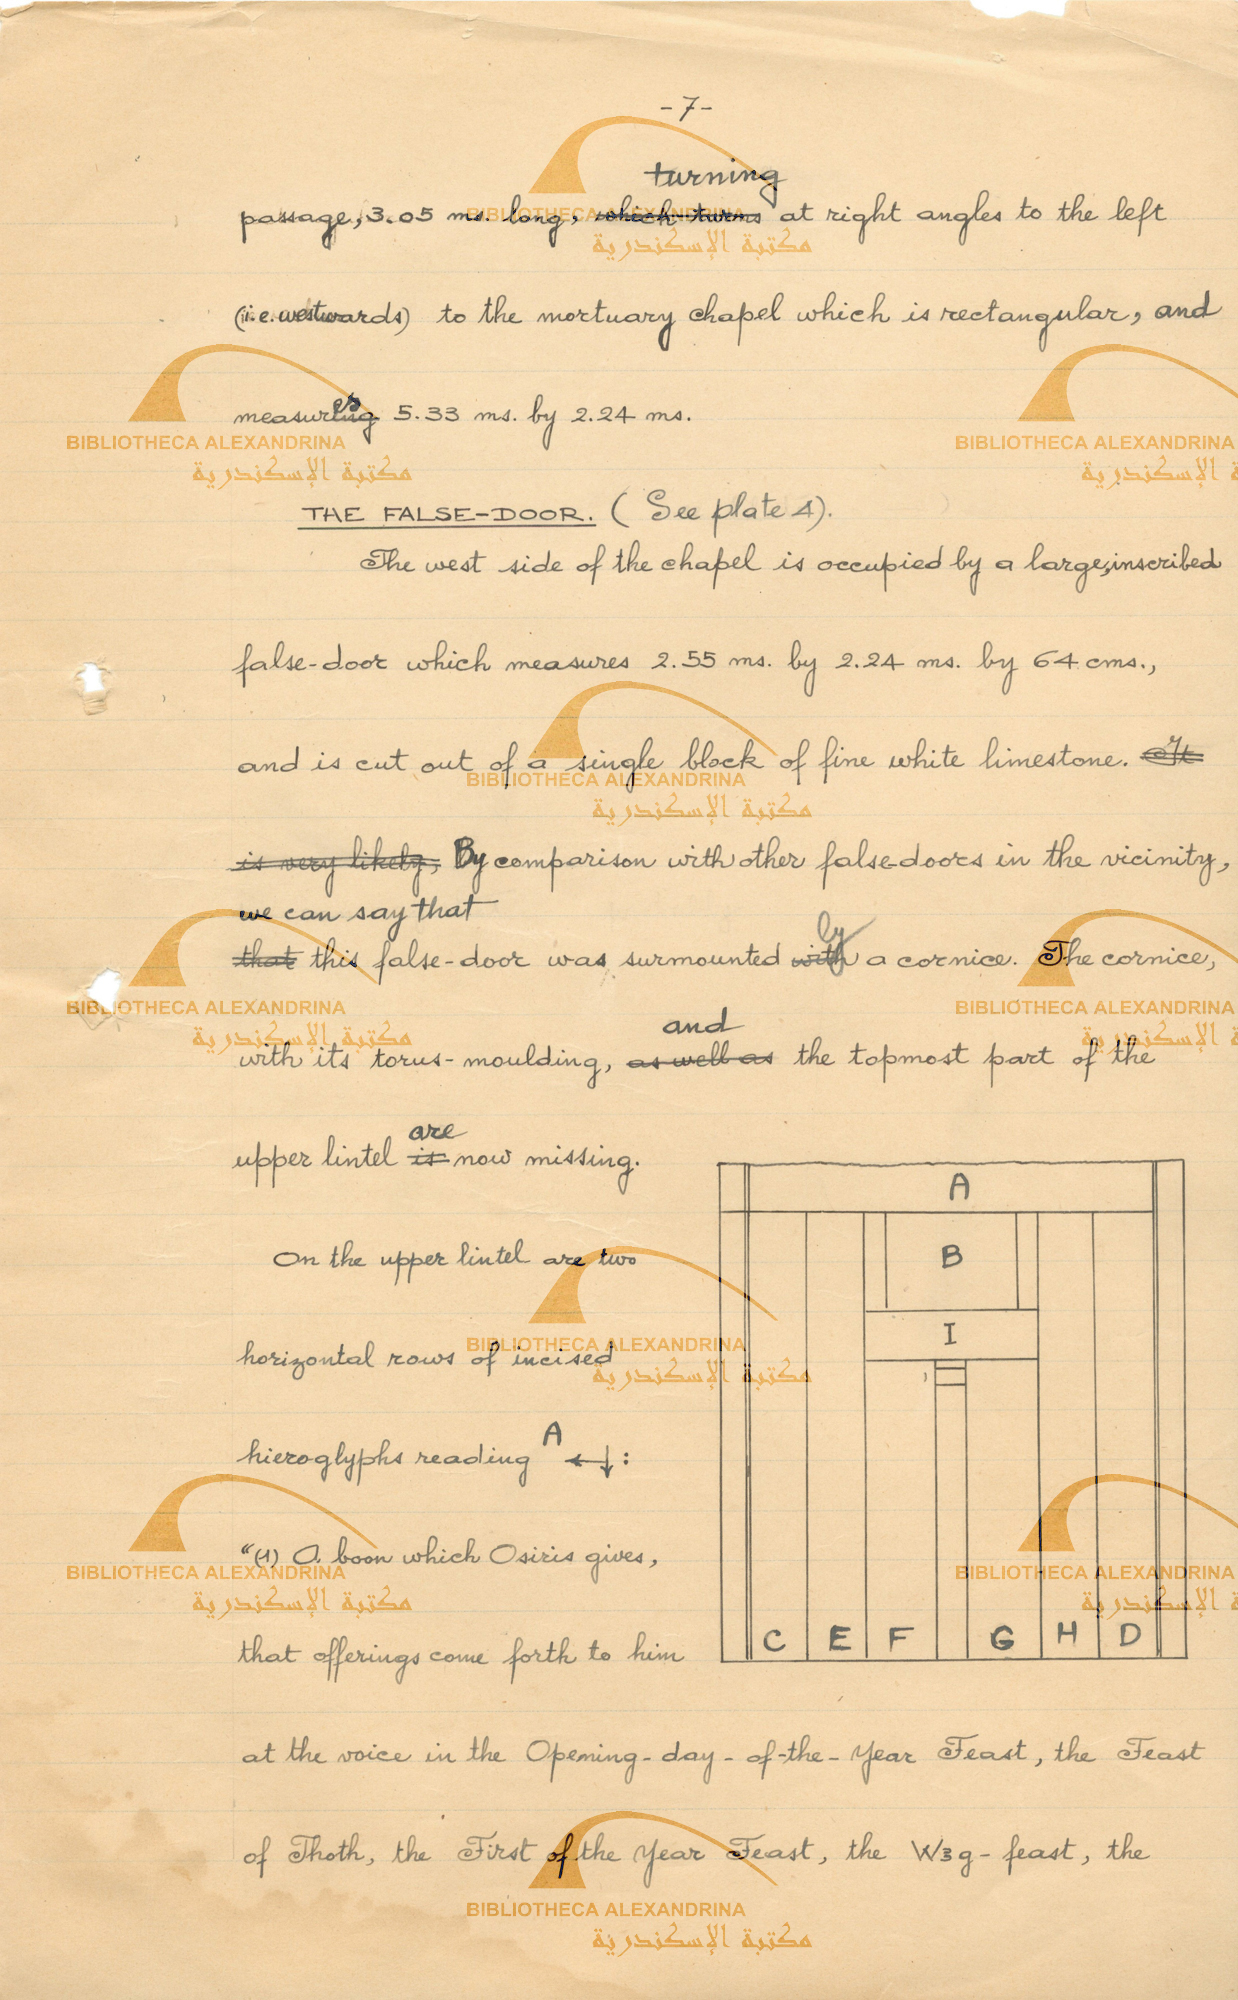 -7-
turning
passage, 3.05 ms. long, which turns at right angles to the left
(i.e. westwards) to the mortuary chapel which is rectangular, and
es
measuring 5.33 ms. by 2.24 ms.
THE FALSE-DOOR. ( See plate 4).
The west side of the chapel is occupied by a large, inscribed
false-door which measures 2.55 ms. by 2.24 ms. by 64 cms.,
and is cut out of a single block of fine white limestone. It
is very likely, By comparison with other false-doors in the vicinity,
we can say that
by
that this false-door was surmounted with a cornice. The cornice,
and
with its torus-moulding, as well as the topmost part of the
are
upper lintel is now missing.
On the upper lintel are two
horizontal rows of incised
hieroglyphs reading A ←↓ :
"(1) A boon which Osiris gives,
that offerings come forth to him
A
B
I
C E F G H D
at the voice in the Opening-day-of-the-Year Feast, the Feast
of Thoth, the First of the Year Feast, the W3g-feast, the
BIBLIOTHECA ALEXANDRINA
مكتبة الإسكندرية
BIBLIOTHECA ALEXANDRINA
مكتبة الإسكندرية
BIBLIOTHECA ALEXANDRINA
مكتبة الإسكندرية
BIBLIOTHECA ALEXANDRINA
مكتبة الإسكندرية
BIBLIOTHECA ALEXANDRINA
مكتبة الإسكندرية
BIBLIOTHECA ALEXANDRINA
مكتبة الإسكندرية
BIBLIOTHECA ALEXANDRINA
مكتبة الإسكندرية
BIBLIOTHECA ALEXANDRINA
مكتبة الإسكندرية
BIBLIOTHECA ALEXANDRINA
مكتبة الإسكندرية
BIBLIOTHECA ALEXANDRINA
مكتبة الإسكندرية